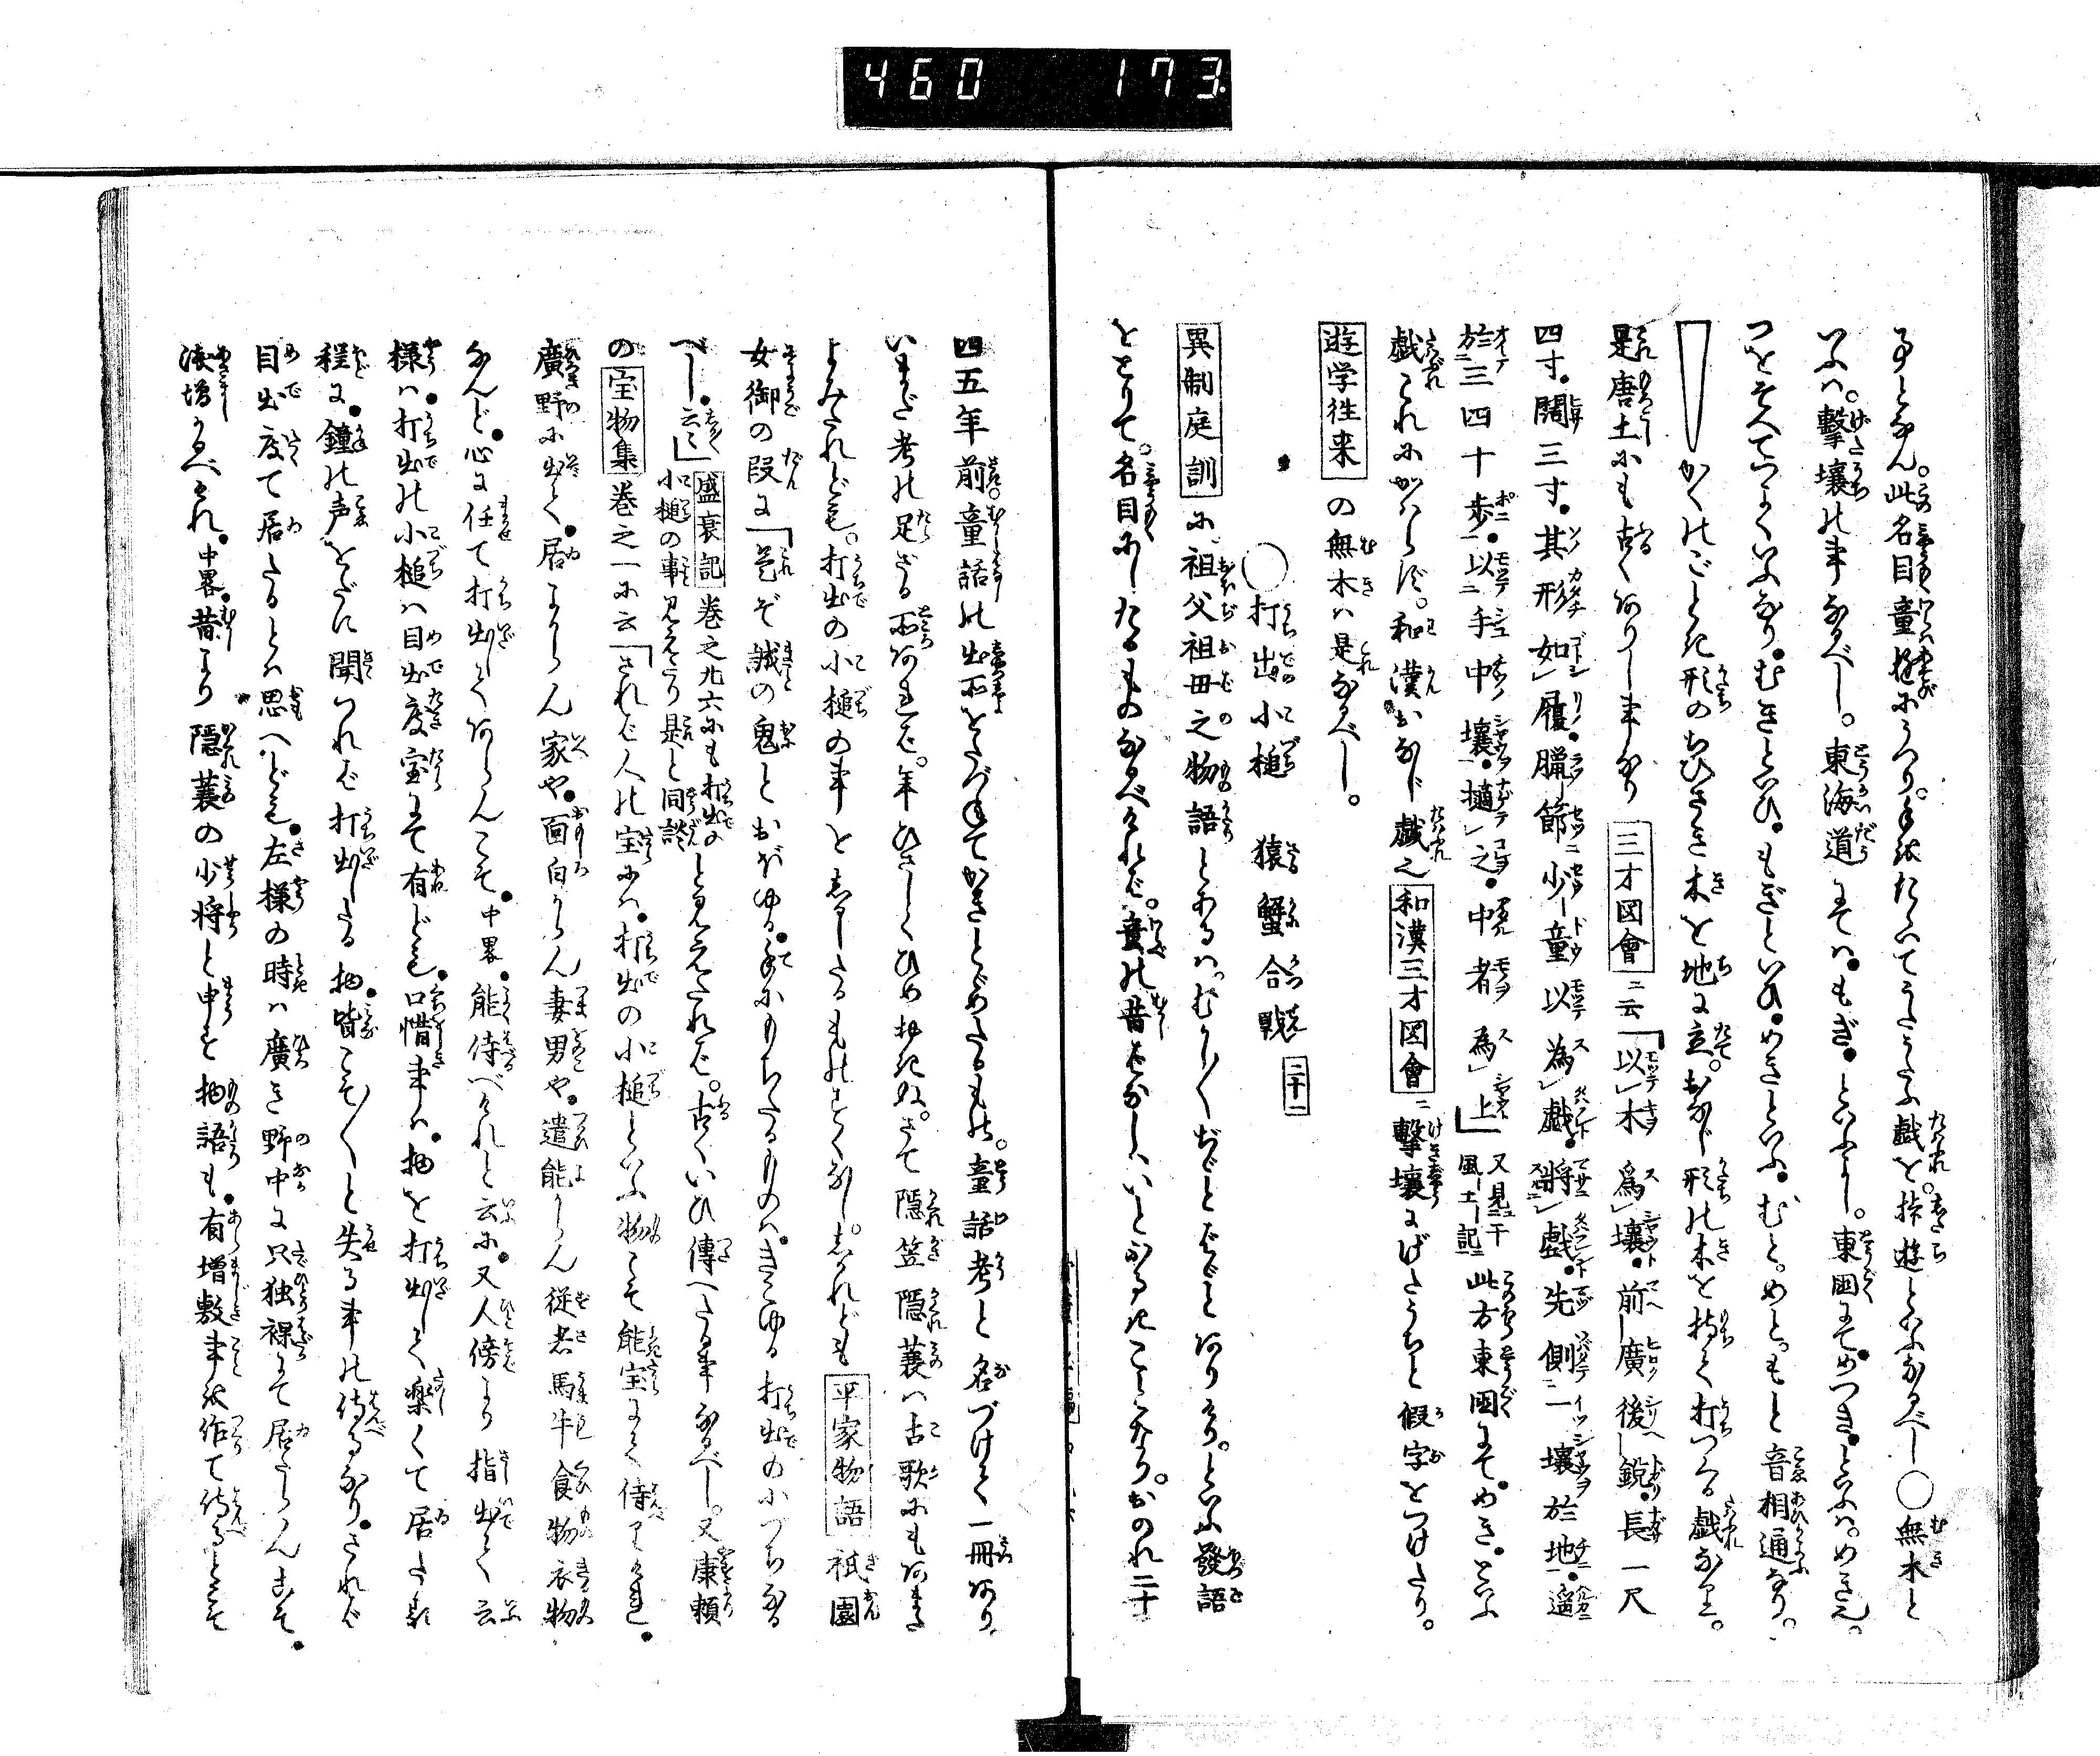 460 173
事となん。此名目童遊にうつり。手拭たゝいてうたふ戯を。柞遊といふなるべし○無木と
いふハ。撃壌の事なるべし。東海道にてハ。もぎ。といふよし。東国にてめつき。といふハ。めきえ。
つをそへてつよくいふなり。むきといひ。もぎといひ。めきといふ。むと。めと。もと音相通なり。
かくのごとき形のちひさき木を地に立。おなじ形の木を持て打つくる戯なり。
是唐土にも古くありし事なり 三才図會ニ云「以木為壌。前廣後鋭。長一尺
四寸。闊三寸。其形如履。臘節少童以為戯。将戯。先側一壌於地。遥
於三四十歩。以手中壌。擿之。中者為上」又見于風土記 此方東国にて。めき。といふ
戯これにかハらず。和漢おなじ戯也 和漢三才図會ニ撃壌にげきうちと假字をつけたり。
遊学往来の無木ハ是なるべし。
○打出小槌 猿蟹合戦 二十一
異制庭訓に祖父祖母之物語とあるハ。むかし〳〵ぢぢとばゞとありけり。といふ發語
をとりて。名目にしたるものなるべければ。童の昔ばなしハいとふるきことなり。おのれ二十
四五年前。童話の出所をたづねてかきとどめたるもの。童話考と名づけて一冊あり。
いまだ考の足ざる所あれば。年ひさしくひめおきぬ。さて隠笠隠蓑ハ古歌にもあまた
よみたれども。打出の小槌の事をしるしたるものすくなし。しかれども 平家物語 祇園
女御の段に「是ぞ誠の鬼とおぼゆる。手にもちたるものハ。きこゆる打出の小づちなる
べし。云云」 盛衰記 巻之廿六にも打出の小槌の事見えたり是と同談 と見えたれば。古くいひ傳へたる事なるべし。又康頼
の宝物集巻之一に云「されば人の宝にハ。打出の小槌といふ物こそ能宝にて侍りけれ。
廣野に出て。居よからん家や。面白からん妻男や。遣能からん従者馬牛食物衣物
なんど。心に任て打出してあらんこそ。中畧。能侍べけれと云に。又人傍より指出て云
様ハ。打出の小槌ハ目出度宝にて有ども。口惜事ハ。物を打出して楽くて居たる
程に。鐘の声をだに聞つれば打出したる物。皆こそ〳〵と失る事の侍るなり。されば
目出度て居たるとハ思へども。左様の時ハ廣き野中に只独裸にて居たらんこそ。
浅増かるべけれ。中畧。昔より隠蓑の少将と申す物語も。有増敷事を作て侍るとこそ